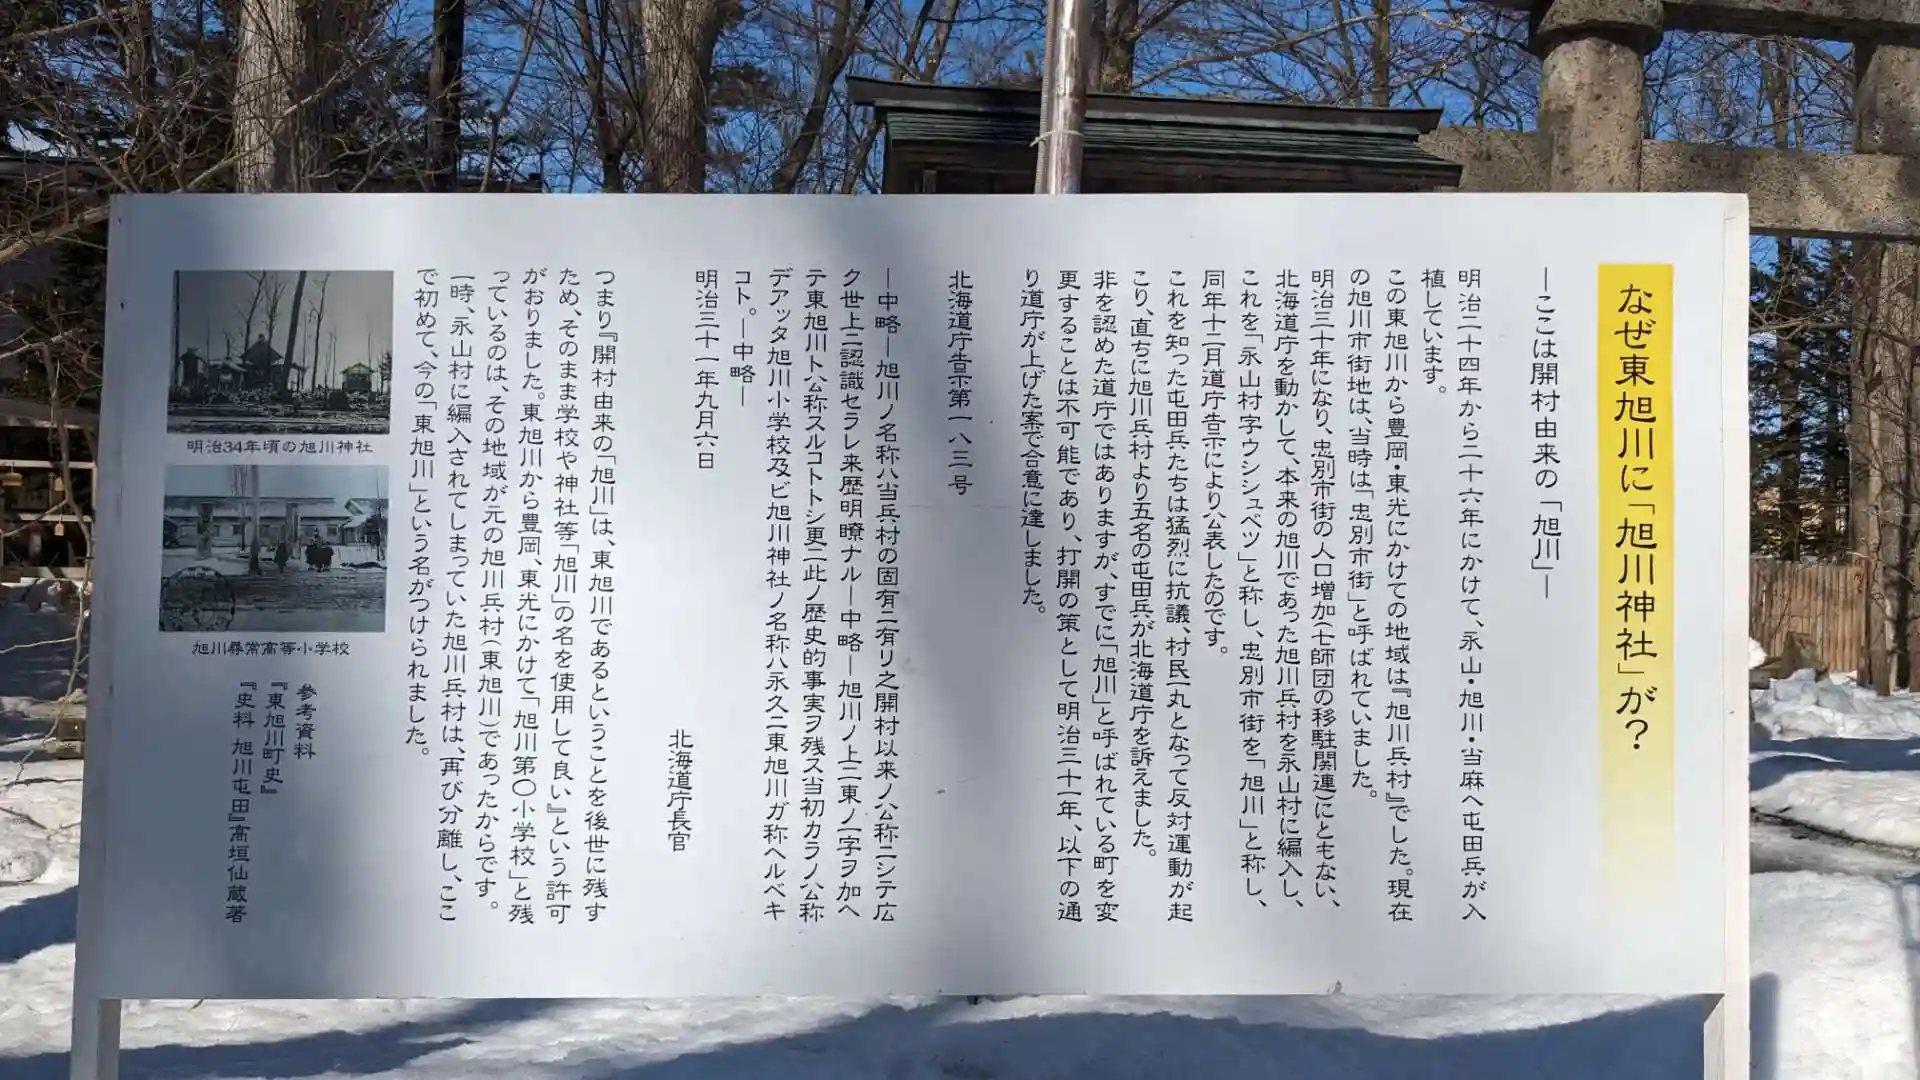 なぜ東旭川に「旭川神社」が？
―ここは開村由来の「旭川」―
明治二十四年から二十六年にかけて、永山・旭川・当麻へ屯田兵が入
植しています。
この東旭川から豊岡・東光にかけての地域は『旭川兵村』でした。現在
の旭川市街地は、当時は「忠別市街」と呼ばれていました。
明治三十年になり、忠別市街の人口増加(七師団の移駐関連)にともない、
北海道庁を動かして、本来の旭川であった旭川兵村を永山村に編入し、
これを「永山村字ウシシュベツ」と称し、忠別市街を「旭川」と称し、
同年十二月道庁告示により公表したのです。
これを知った屯田兵たちは猛烈に抗議、村民一丸となって反対運動が起
こり、直ちに旭川兵村より五名の屯田兵が北海道庁を訴えました。
非を認めた道庁ではありますが、すでに「旭川」と呼ばれている町を変
更することは不可能であり、打開の策として明治三十一年、以下の通
り道庁が上げた案で合意に達しました。
北海道庁告示第一八三号
―中略― 旭川ノ名称ハ当兵村の固有ニ有リ之開村以来ノ公称ニシテ広
ク世上ニ認識セラレ来歴明瞭ナル―中略―旭川ノ上ニ東ノ一字ヲ加ヘ
テ東旭川ト公称スルコトトシ更ニ此ノ歴史的事実ヲ残ス当初カラノ公称
デアッタ旭川小学校及ビ旭川神社ノ名称ハ永久ニ東旭川ガ称ヘルベキ
コト。―中略―
明治三十一年九月六日
北海道庁長官
つまり『開村由来の「旭川」は、東旭川であるということを後世に残す
ため、そのまま学校や神社等「旭川」の名を使用して良い』という許可
がおりました。東旭川から豊岡、東光にかけて「旭川第〇小学校」と残
っているのは、その地域が元の旭川兵村(東旭川)であったからです。
一時、永山村に編入されてしまっていた旭川兵村は、再び分離し、ここ
で初めて、今の「東旭川」という名がつけられました。
明治34年頃の旭川神社
旭川尋常高等小学校
参考資料
『東旭川町史』
『史料 旭川屯田』高垣仙蔵著